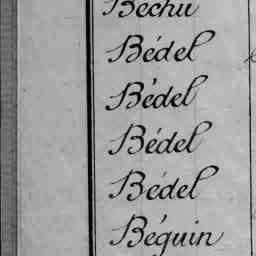 Béchu
Bédel
Bédel
Bédel
Bédel
Béguin